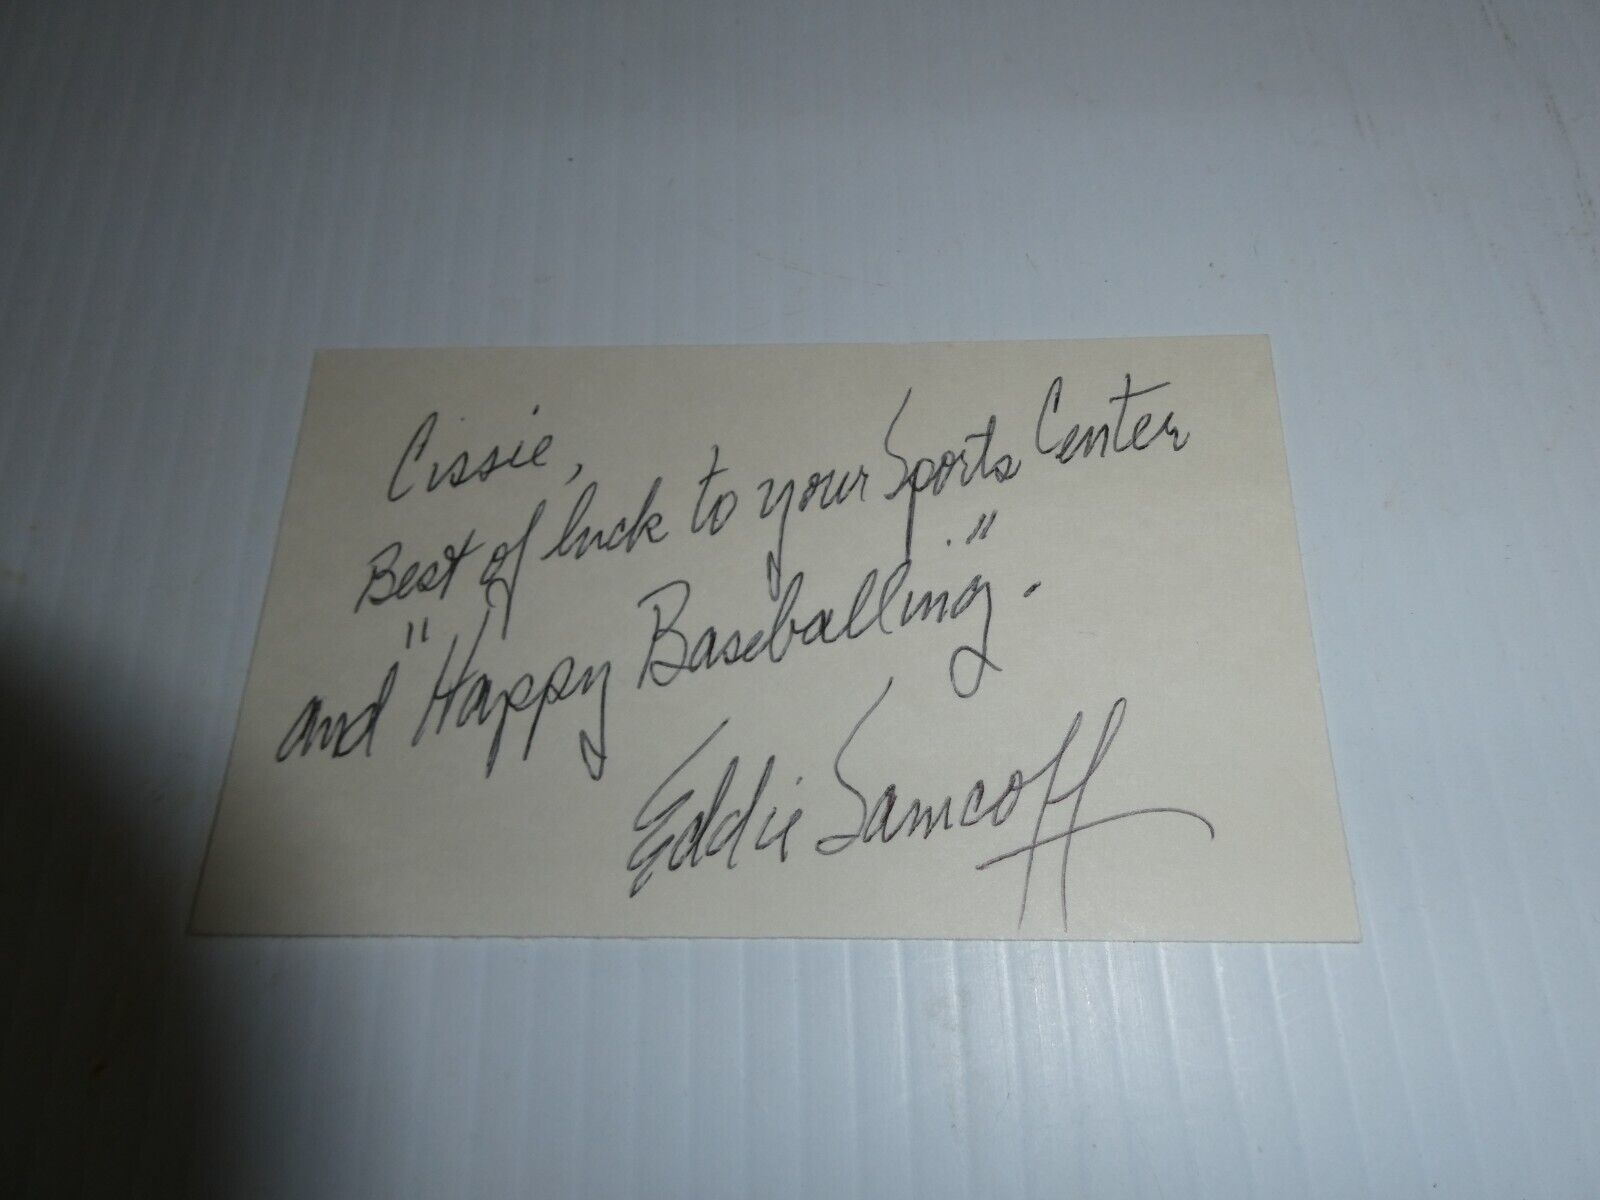 Cissie,
Best of luck to your Sports Center
and "Happy Baseballing."
Eddie Samcoff